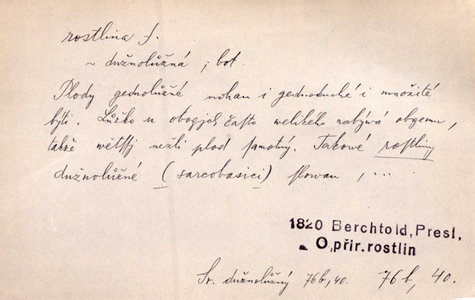 rostlina f.
~ dužnolůžná ; bot.
Plody gednolůžné mohau i gednoduché i množité
býti. Lůžko u obogjch často welikého nabýwá obgemu,
takže wětssj nežli plod samotný. Takowé rostliny
dužnolůžné (sarcobasici) slowau, ...
1820 Berchtold, Presl,
O přir. rostlin
Sv. dužnolůžný 76b, 40. 76b, 40